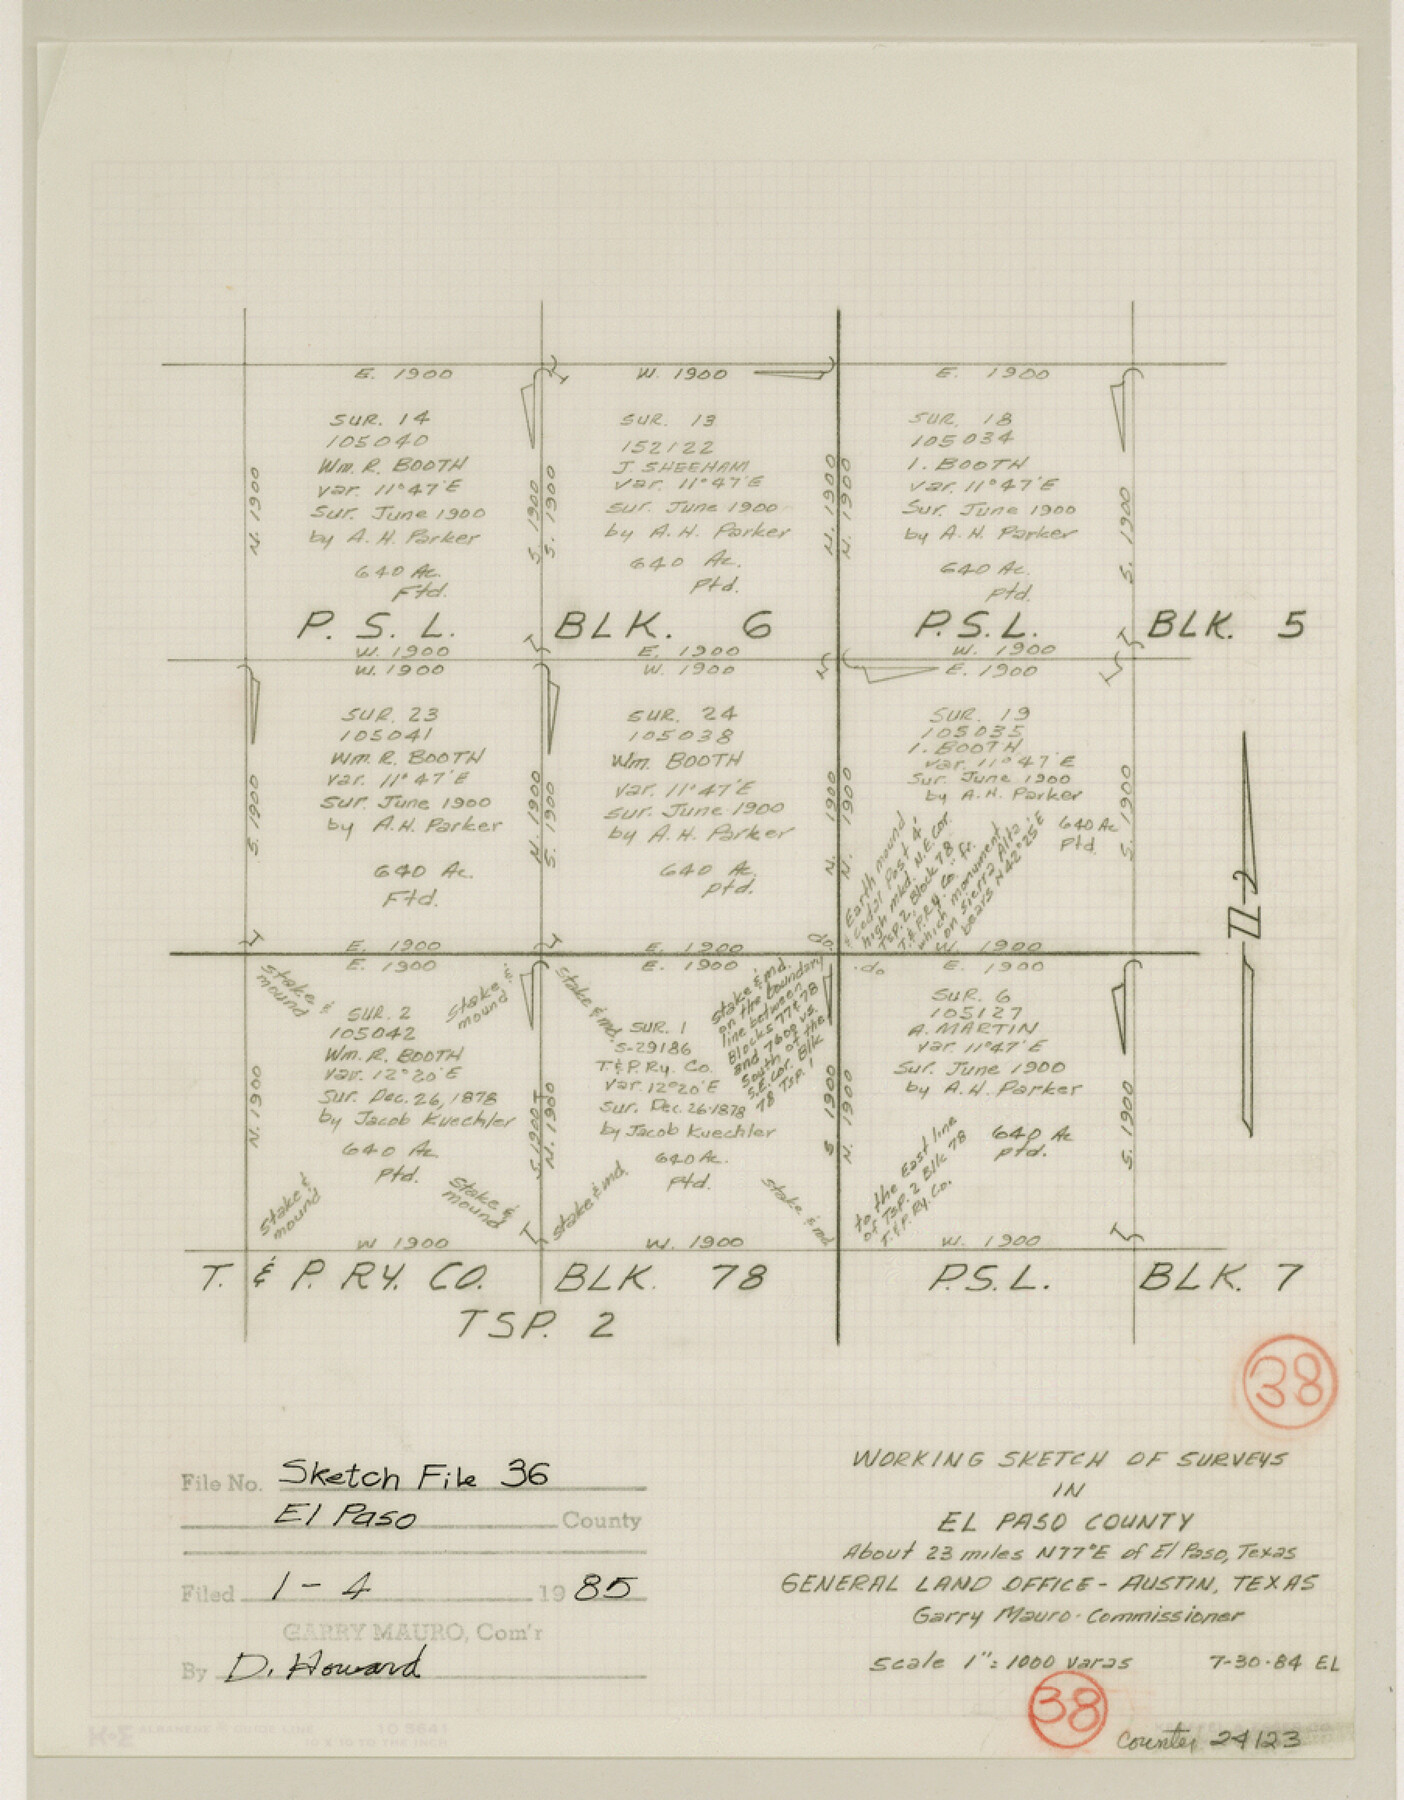 E. 1900
SUR. 14
105040
Wm. R. BOOTH
var. 11°47'E
Sur. June 1900
by A. H. Parker
640 Ac.
Ftd.
N 1900
S. 1900
W. 1900
SUR. 13
152122
J. SHEEHAM
var. 11°47'E
sur. June 1900
by A. H. Parker
640 Ac.
Ptd.
S. 1900
N. 1900
E. 1900
SUR. 18
105034
I. BOOTH
var. 11°47'E
Sur. June 1900
by A. H. Parker
640 Ac.
Ptd.
N. 1900
S. 1900
P. S. L. BLK. 6
P.S.L. BLK. 5
W. 1900
E. 1900
W. 1900
W. 1900
SUR. 23
105041
Wm. R. BOOTH
var. 11°47'E
Sur. June 1900
by A.H. Parker
640 Ac.
Ftd.
S. 1900
N. 1900
E. 1900
W. 1900
SUR. 24
105038
Wm. BOOTH
var. 11°47'E
sur. June 1900
by A. H. Parker
640 Ac.
Ptd.
S. 1900
N. 1900
E. 1900
do.
E. 1900
SUR. 19
105035
I. BOOTH
var. 11°47'E
Sur. June 1900
by A.H. Parker
640 Ac
Ptd.
N. 1900
S. 1900
Earth mound
& cedar Post 4'
high mkd. N.E. Cor.
TSP. 2, Block 78
T.&P. RY. Co." fr.
which monument
on Sierra Alta
bears N42°25'E
W. 1900
E. 1900
stake &
mound
Stake
mound
SUR. 2
105042
Wm. R. BOOTH
var. 12°20'E
Sur. Dec. 26, 1878
by Jacob Kuechler
640 Ac
Ptd.
N. 1900
S. 1900
Stake &
mound
Stake &
mound
W 1900
E. 1900
stake & md.
stake & md.
on the boundary
line between
Blocks 77 & 78
and 7600 vs.
South of the
S.E. Cor. Blk
78 Tsp. 1
SUR. 1
S-29186
T.&P. Ry. Co.
var. 12°20'E
sur. Dec. 26-1878
by Jacob Kuechler
640 Ac.
Ptd.
N. 1900
S 1900
stake & md.
stake & md
W. 1900
do
E. 1900
SUR. 6
105127
A. MARTIN
var. 11°47'E
Sur. June 1900
by A. H. Parker
640 Ac
Ptd.
N. 1900
S. 1900
to the East line
of TSP. 2 Blk 78
T.&P. Ry. Co.
W. 1900
T. & P. RY. CO. BLK. 78
TSP. 2
P.S.L. BLK. 7
38
File No. Sketch File 36
El Paso County
Filed 1-4 1985
GARRY MAURO, Com'r
By D. Howard
WORKING SKETCH OF SURVEYS
IN
EL PASO COUNTY
About 23 miles N77°E of El Paso, Texas
GENERAL LAND OFFICE - AUSTIN, TEXAS
Garry Mauro - Commissioner
Scale 1"= 1000 varas 7-30-84 EL
38
Counter 24123
K+E ALBANENE GUIDE LINE 10 5641
10 X 10 TO THE INCH